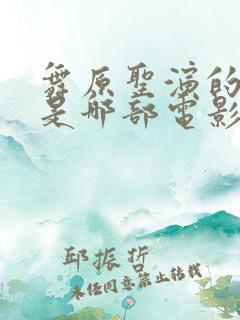 舞原聖演的
是哪部電影
邱振哲
未任同意禁止转载